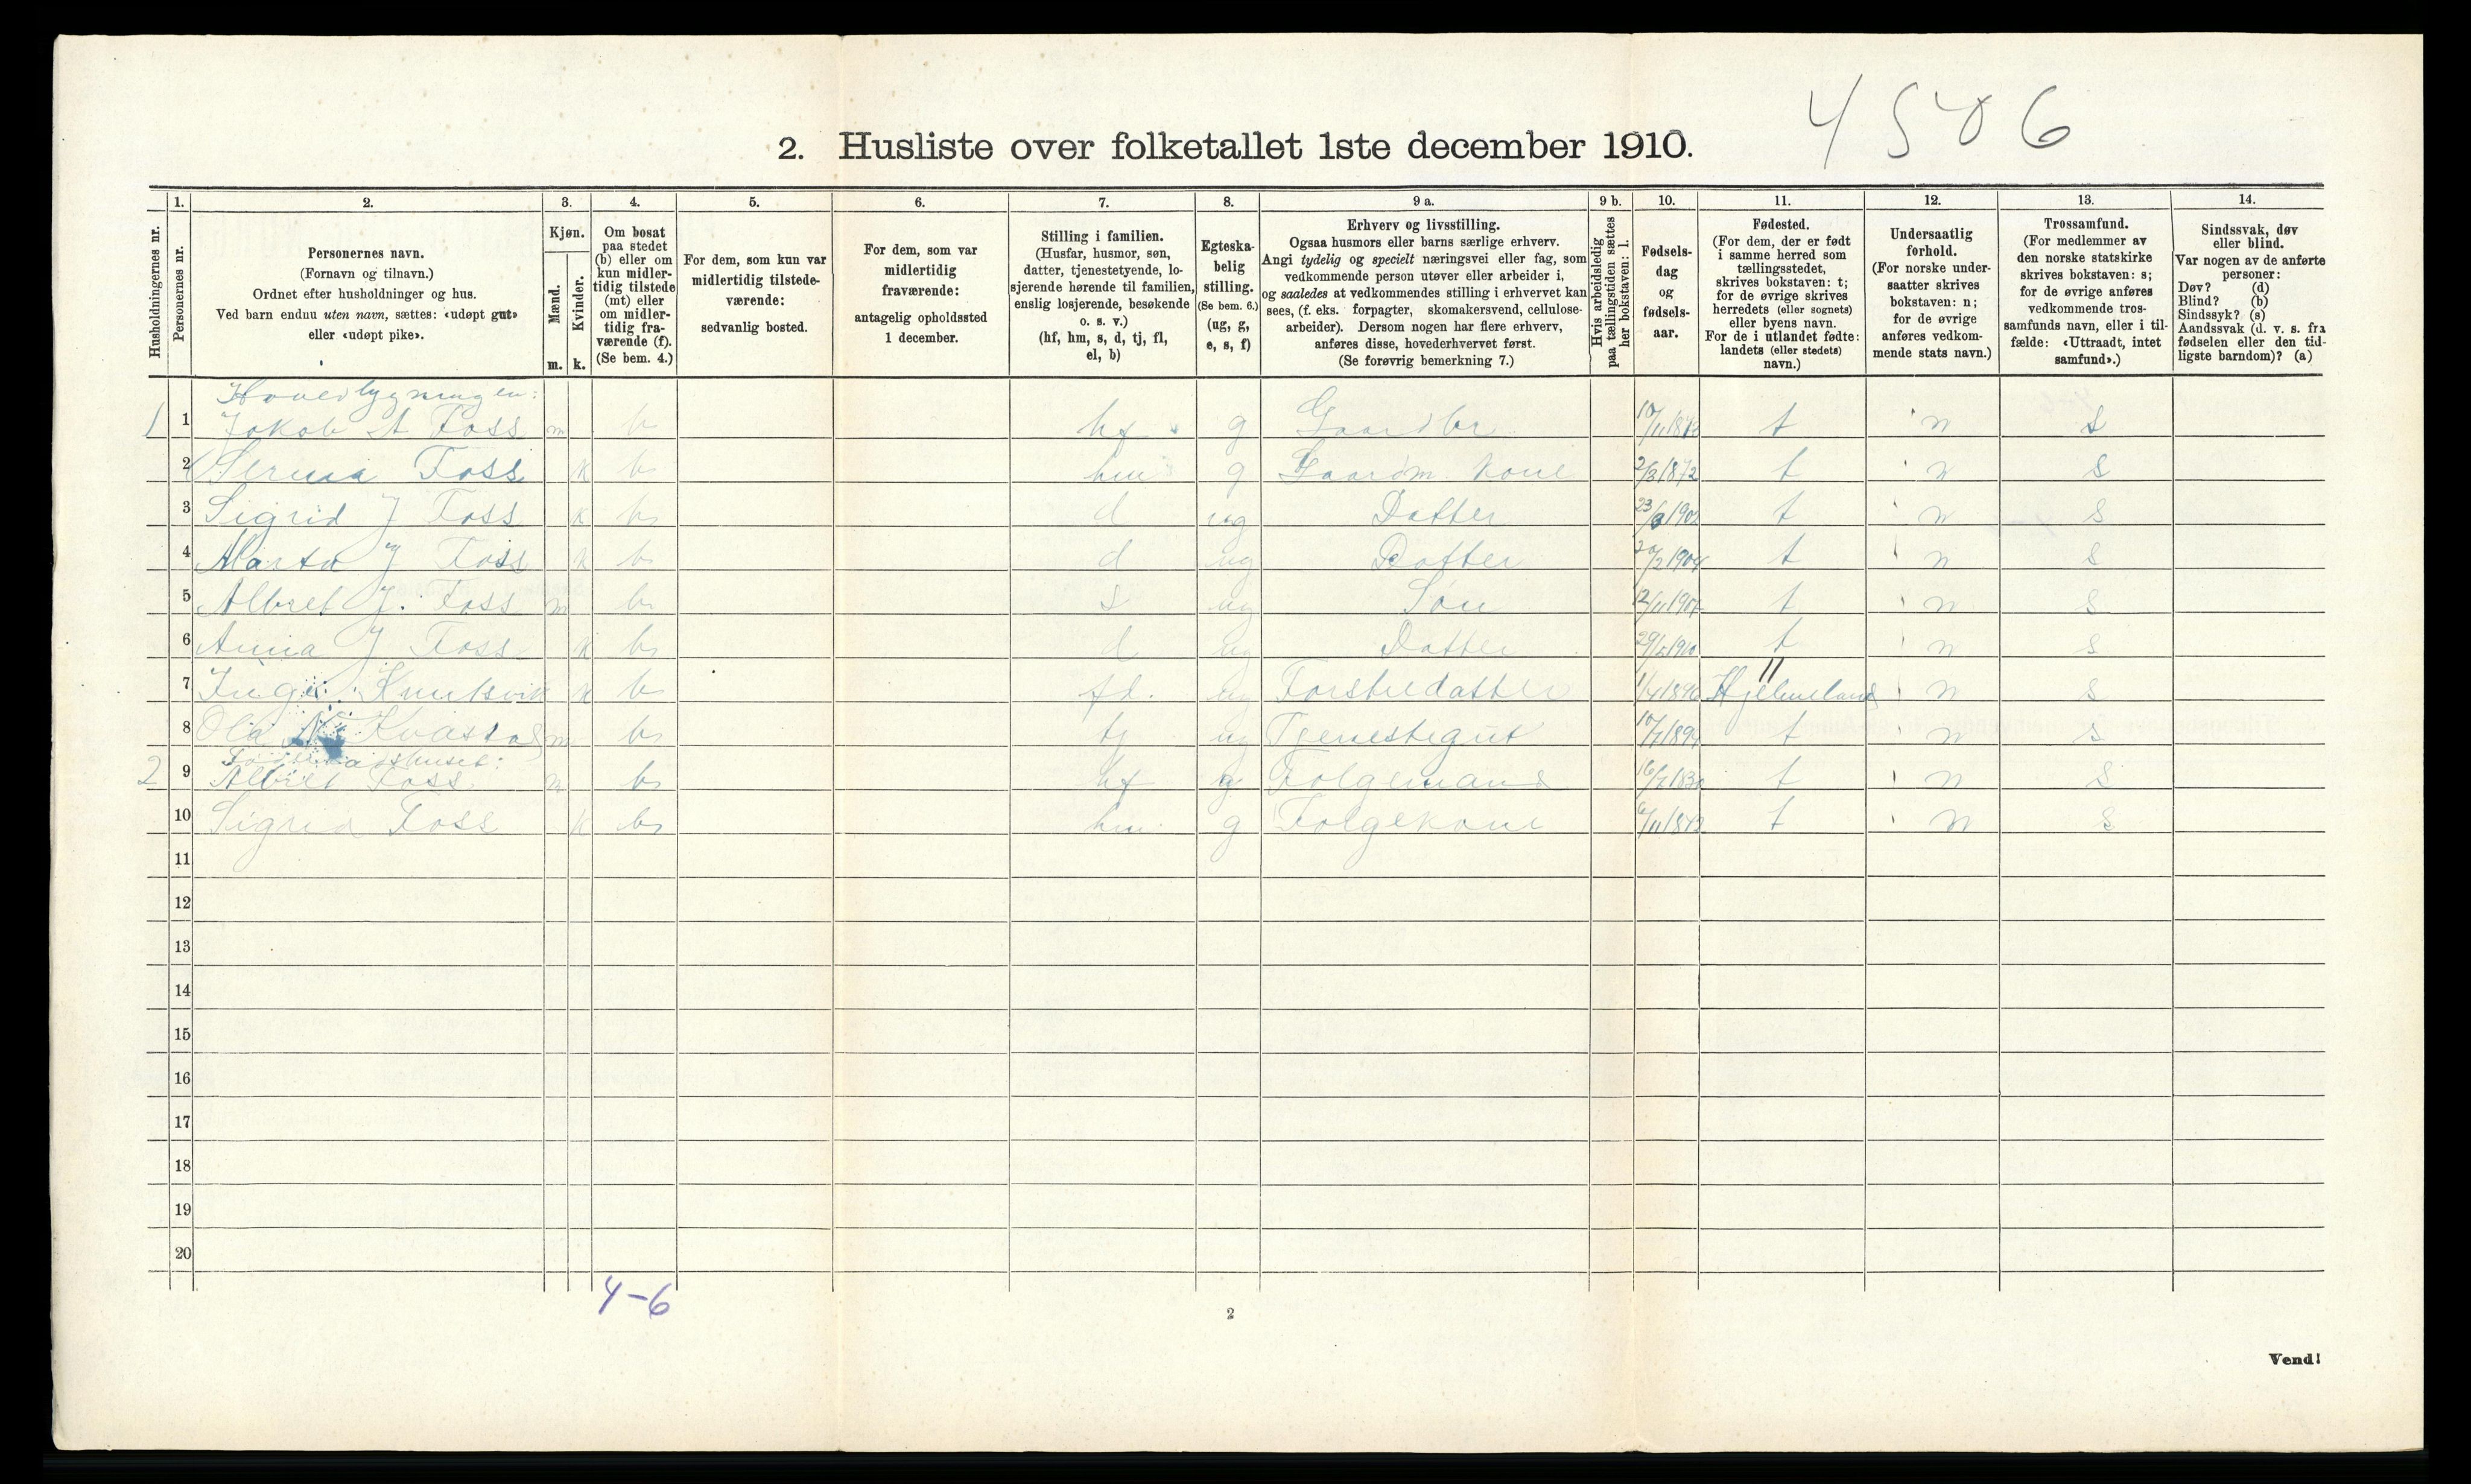 4506
2. Husliste over folketallet 1ste december 1910.
Husholdningernes nr.
1. Personernes nr.
2. Personernes navn. (Fornavn og tilnavn.) Ordnet efter husholdninger og hus. Ved barn endnu uten navn, sættes: «udøpt gut» eller «udøpt pike».
3. Kjøn. Mænd. m. Kvinder. k.
4. Om bosat paa stedet (b) eller om kun midlertidig tilstede (mt) eller om midlertidig fraværende (f). (Se bem. 4.)
5. For dem, som kun var midlertidig tilstedeværende: sedvanlig bosted.
6. For dem, som var midlertidig fraværende: antagelig opholdssted 1 december.
7. Stilling i familien. (Husfar, husmor, søn, datter, tjenestetyende, losjerende hørende til familien, enslig losjerende, besøkende o. s. v.) (hf, hm, s, d, tj, fl, el, b)
8. Egteskabelig stilling. (Se bem. 6.) (ug, g, e, s, f)
9 a. Erhverv og livsstilling. Ogsaa husmors eller barns særlige erhverv. Angi tydelig og specielt næringsvei eller fag, som vedkommende person utøver eller arbeider i, og saaledes at vedkommendes stilling i erhvervet kan sees, (f. eks. forpagter, skomakersvend, cellulosearbeider). Dersom nogen har flere erhverv, anføres disse, hovederhvervet først. (Se forøvrig bemerkning 7.)
9 b. Hvis arbeidsledig paa tællingstiden sættes her bokstaven: l.
10. Fødselsdag og fødselsaar.
11. Fødested. (For dem, der er født i samme herred som tællingsstedet, skrives bokstaven: t; for de øvrige skrives herredets (eller sognets) eller byens navn. For de i utlandet fødte: landets (eller stedets) navn.)
12. Undersaatlig forhold. (For norske undersaatter skrives bokstaven: n; for de øvrige anføres vedkommende stats navn.)
13. Trossamfund. (For medlemmer av den norske statskirke skrives bokstaven: s; for de øvrige anføres vedkommende trossamfunds navn, eller i tilfælde: «Uttraadt, intet samfund».)
14. Sindssvak, døv eller blind. Var nogen av de anførte personer: Døv? (d) Blind? (b) Sindssyk? (s) Aandssvak (d. v. s. fra fødselen eller den tidligste barndom)? (a)
Hovedbygningen:
1 1 Jokob A Foss m b hf g Gaardbr t n s
2 Serina Foss k b hm g Gaardm. Kone 2/3 1872 t n s
3 Sigrid J Foss k b d ug Datter t n s
4 Marta J Foss k b d ug Datter t n s
5 Albret J. Foss m b s ug Søn t n s
6 Anna J Foss k b d ug Datter t n s
7 Inger Knutsvik k b fl. ug Forstredatter Hjelmeland n s
8 Ola m b tj ug Tjenestegut t n s
2 9 Albret Foss. m b hf g Folgemand t n s
10 Sigrid Foss k b hm g Folgekone t n s
11
12
13
14
15
16
17
18
19
20
4-6
2
Vend!